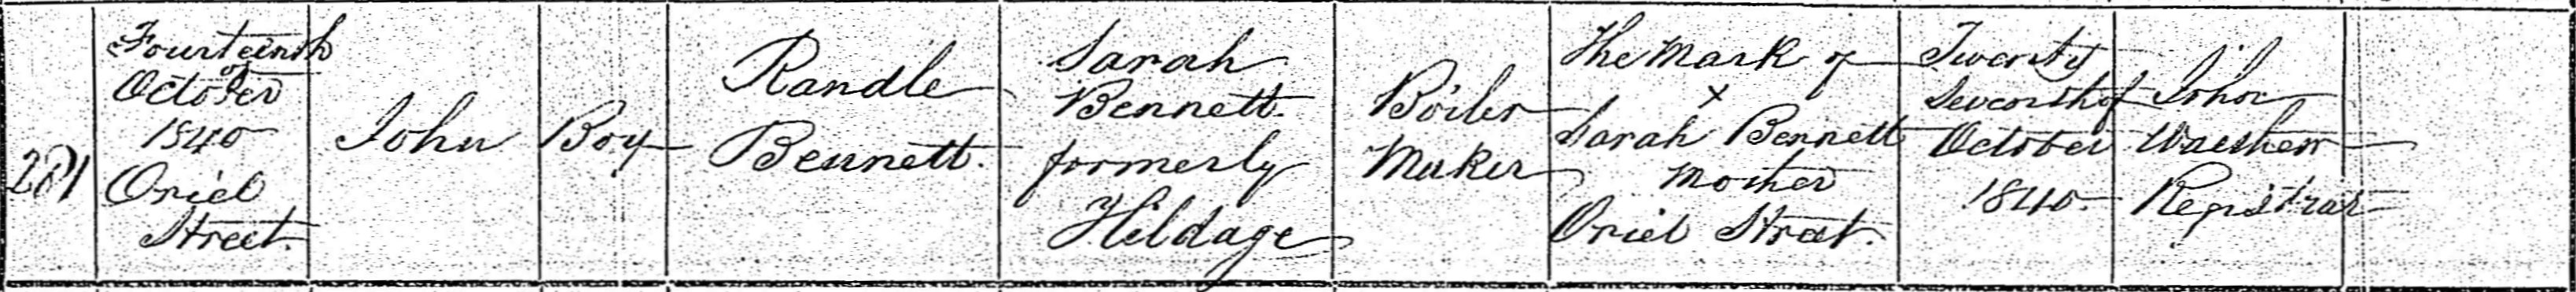 281
Fourteenth
of
October
1840
Oriel
Street.
John
Boy
Randle
Bennett.
Sarah
Bennett
formerly
Hildage
Boiler
Maker
The Mark of
X
Sarah Bennett
Mother
Oriel Street.
Twenty
Seventh of
October
1840.
John
Registrar